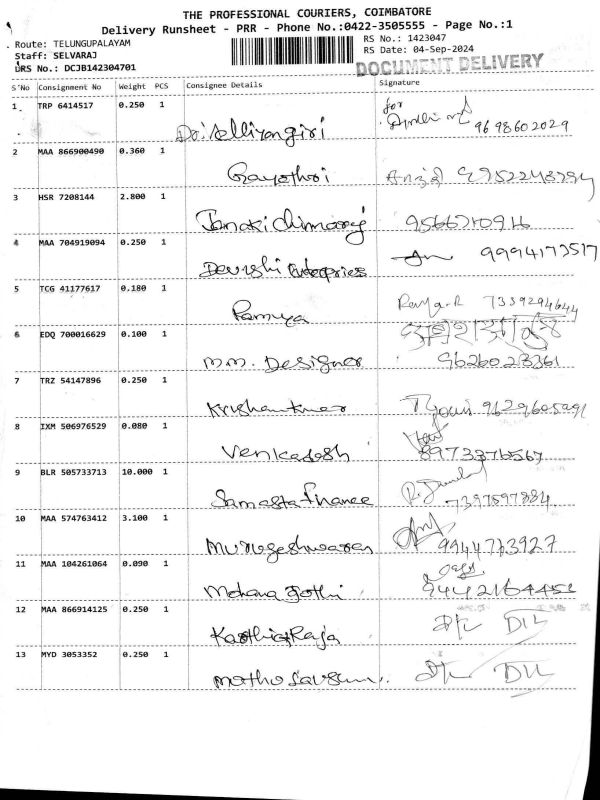 THE PROFESSIONAL COURIERS, COIMBATORE
Delivery Runsheet - PRR - Phone No.:0422-3505555 - Page No.:1
Route: TELUNGUPALAYAM RS No.: 1423047
Staff: SELVARAJ RS Date: 04-Sep-2024
DRS No.: DCJB142304701 DOCUMENT DELIVERY
S'No Consignment No Weight PCS Consignee Details Signature
1 TRP 6414517 0.250 1 for
9698602029
2 MAA 866900490 0.360 1
Gayathri
3 HSR 7208144 2.800 1
Janaki
4 MAA 704919094 0.250 1 9994173517
Devrshi Enterpries
5 TCG 41177617 0.180 1
Ramya 7339294644
6 EDQ 700016629 0.100 1
M.M. Designer 9626023361
7 TRZ 54147896 0.250 1
Krishankumar
8 IXM 506976529 0.080 1
Venkadesh 8973376567
9 BLR 505733713 10.000 1
Samasta Finance 7397597884
10 MAA 574763412 3.100 1
Murugeshwaran 9944773927
11 MAA 104261064 0.090 1
Mohana Jothi
12 MAA 866914125 0.250 1
Karthick Raja
13 MYD 3053352 0.250 1